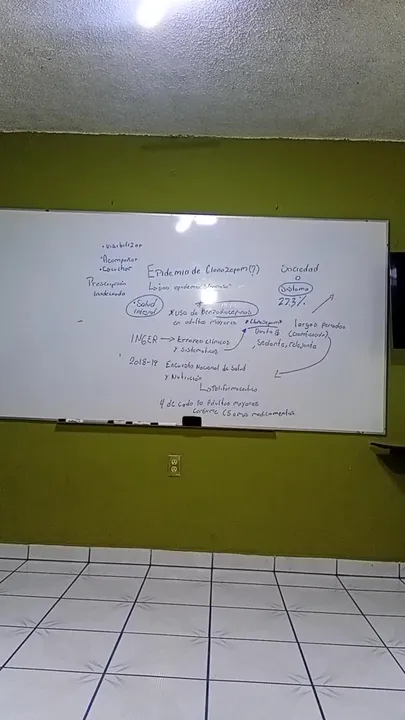 • Visibilizar
• Acompañar
• Escuchar
Prescripción
inadecuada
Epidemia de Clonazepam(?)
Sociedad
o
Sistema
27.3%
• Salud
integral
* Uso de Benzodiacepinas
en adultos mayores
* Clonazepam
Sedante, relajante
largos periodos
INGER → Errores clínicos
y Sistemáticos
2018-19 Encuesta Nacional de Salud
y Nutrición
4 de cada 10 Adultos mayores
consume (5 o más medicamentos